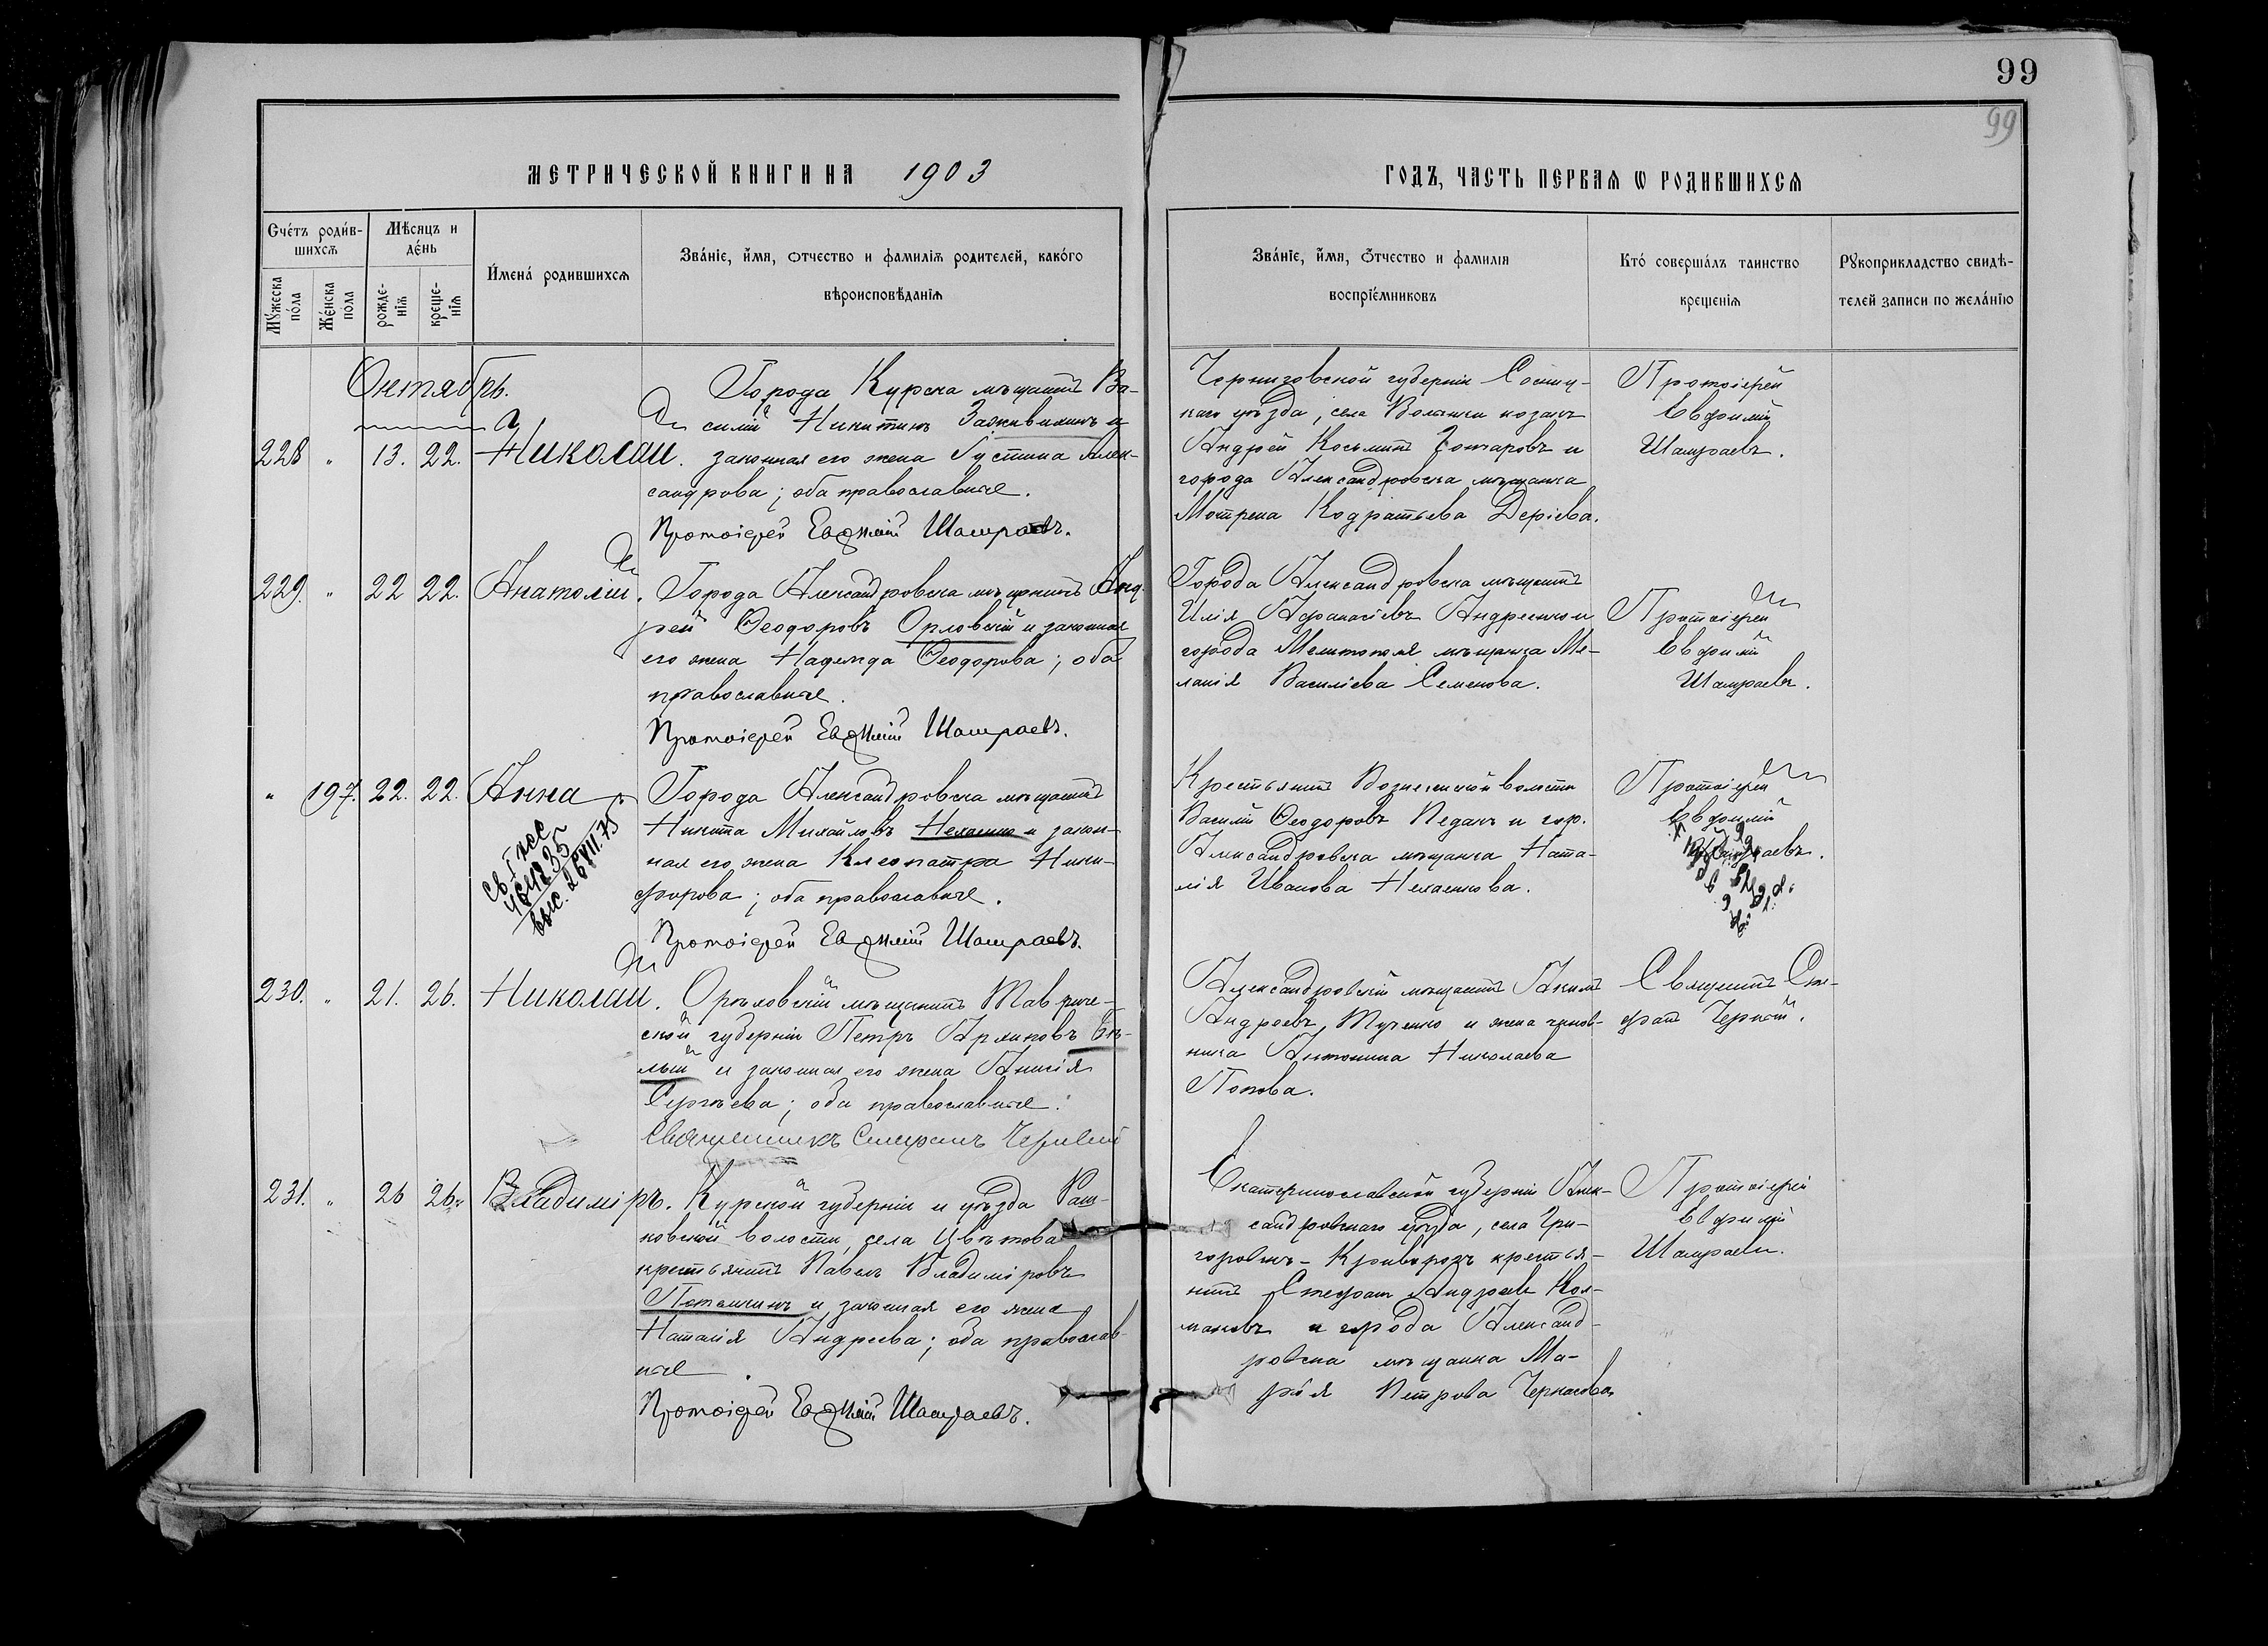 99
99
МЕТРИЧЕСКОЙ КНИГИ НА 1903
ГОДЪ, ЧАСТЬ ПЕРВАЯ Ѡ РОДИВШИХСЯ
Счетъ родившихся
Мужеска пола
Женска пола
Мѣсяцъ и день
рожденія
крещенія
Имена родившихся
Званіе, имя, отчество и фамилія родителей, какого
вѣроисповѣданія
Званіе, имя, отчество и фамилія
воспріемниковъ
Кто совершалъ таинство
крещенія
Рукоприкладство свидѣ-
телей записи по желанію
Октябрь.
228 " 13. 22. Николай.
Города Курска мѣщанинъ Ва-
силій Никитинъ и
законная его жена Іустина Алек-
сандрова; оба православные.
Протоіерей Евфимій Шамраевъ.
Черниговской губерніи Сосниц-
каго уѣзда, села козакъ
Андрей Косьминъ Гончаровъ и
города Александровска мѣщанка
Мотрена Кодратьева Деріева.
Протоіерей
Евфимій
Шамраевъ.
229. " 22 22. Анатолій.
Города Александровска мѣщанинъ Анд-
рей Ѳеодоровъ Орловскій и законная
его жена Надежда Ѳеодорова; оба
православные.
Протоіерей Евфимій Шамраевъ.
Города Александровска мѣщанинъ
Илія Афанасіевъ Андреенко и
города Мелитополя мѣщанка Ме-
ланія Василіева Семенова.
Протоіерей
Евфимій
Шамраевъ.
" 197. 22. 22. Анна
Города Александровска мѣщанинъ
Никита Михайловъ и закон-
ная его жена Клеопатра Ники-
форова; оба православные.
Протоіерей Евфимій Шамраевъ.
Крестьянинъ Вознесенской волости
Василій Ѳеодоровъ Педакъ и гор.
Александровска мѣщанка Ната-
лія Иванова
Протоіерей
Евфимій
Шамраевъ.
230. " 21. 26. Николай.
Орѣховскій мѣщанинъ Тавриче-
ской губерніи Петръ Бѣ-
лый и законная его жена Анисія
Сергѣева; оба православные.
Священникъ Симеонъ
Александровскій мѣщанинъ Акимъ
Андреевъ Тученко и жена чинов-
ника Антонина Николаева
Попова.
Священникъ
231. " 26 26. Владиміръ.
Курской губерніи и уѣзда Раш-
ковской волости, села Цвѣтова
крестьянинъ Павелъ Владиміровъ
Потемкинъ и законная его жена
Наталія Андреева; оба православ-
ные.
Протоіерей Евфимій Шамраевъ.
Екатеринославской губерніи Алек-
сандровскаго уѣзда, села Гри-
горовки-Криворогъ крестья-
нинъ Стефанъ Андреевъ Кол-
маковъ и города Александ-
ровска мѣщанка Ма-
рія Петрова Черкасова.
Протоіерей
Евфимій
Шамраевъ.